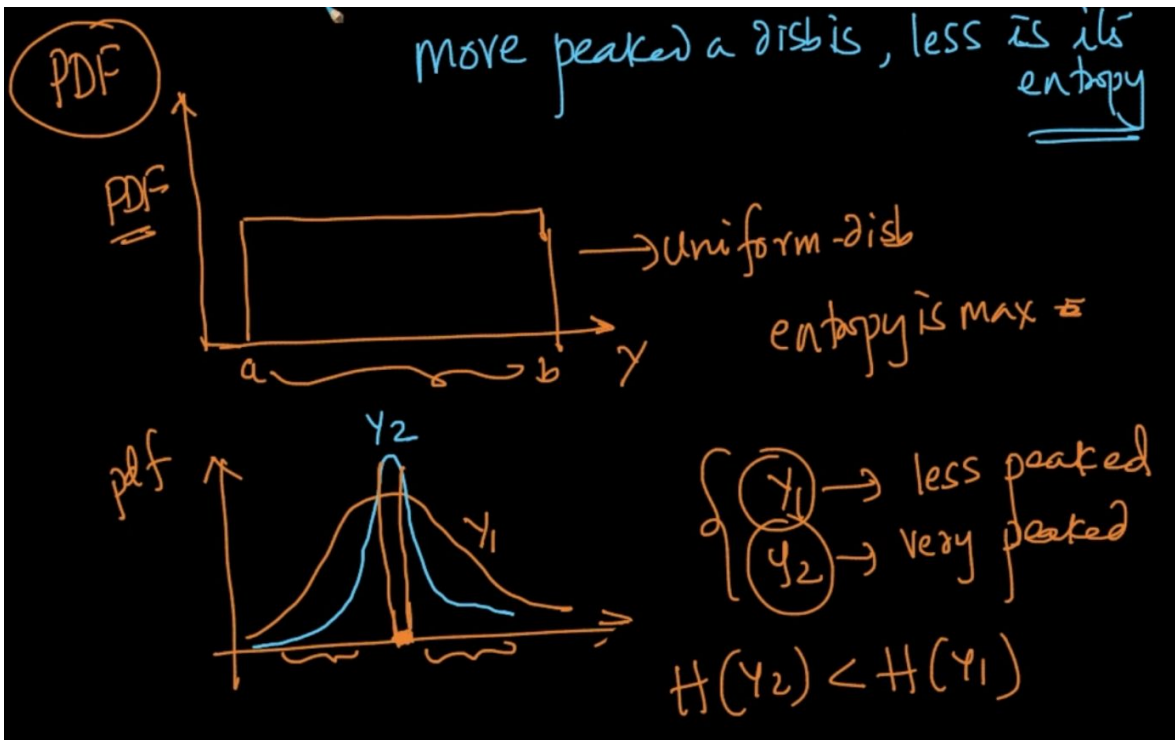 PDF
more peaked a disb is, less is its
entropy
PDF
→ uniform-disb
entropy is max
a
b
Y
Y2
pdf
Y1
Y1 → less peaked
Y2 → very peaked
H(Y2) < H(Y1)